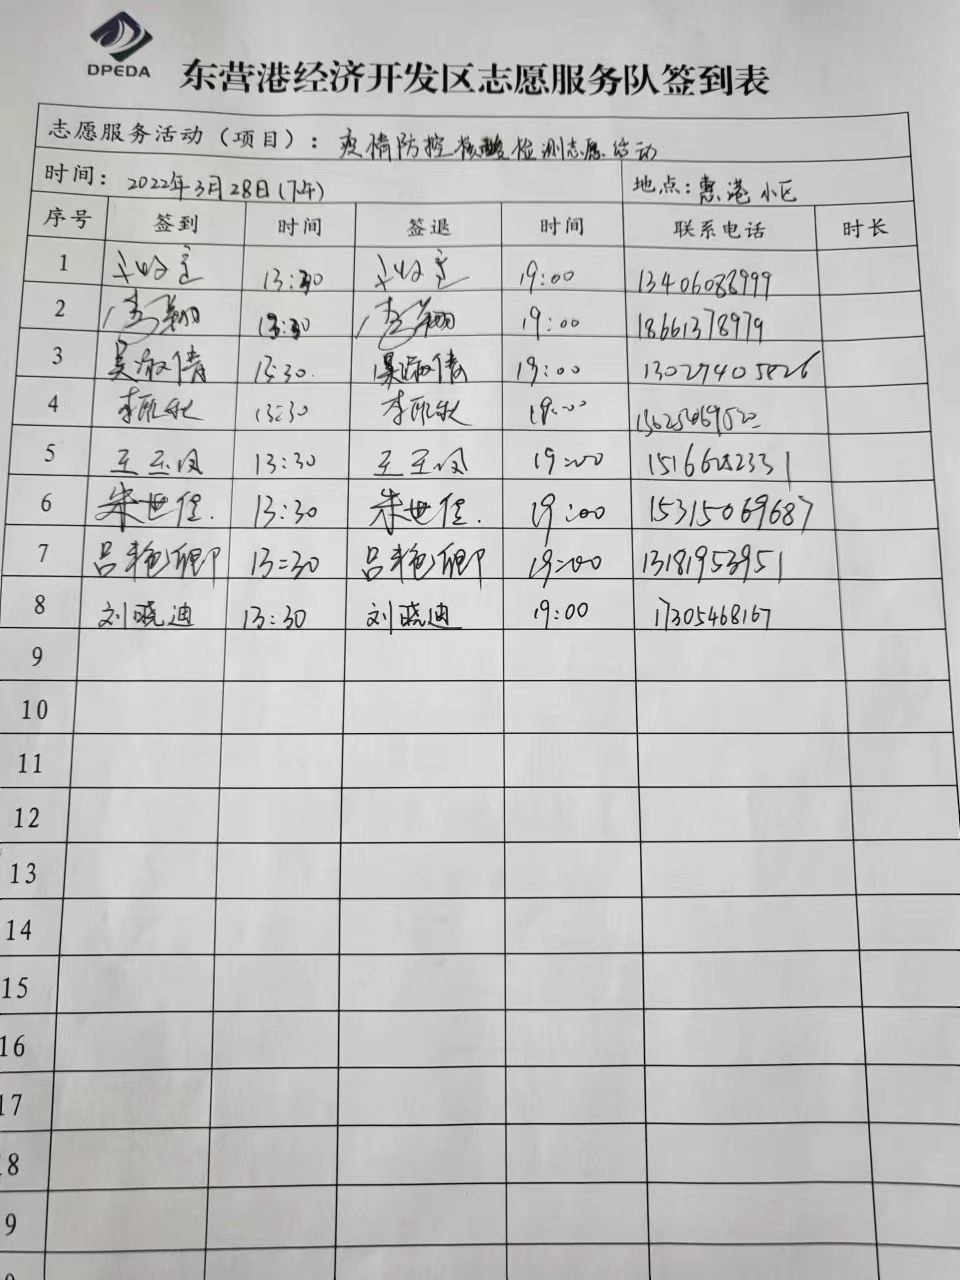 DPEDA
东营港经济开发区志愿服务队签到表
志愿服务活动（项目）：疫情防控核酸检测志愿活动
时间：2022年3月28日(下午) 地点：惠港小区
序号 签到 时间 签退 时间 联系电话 时长
1 13:30 19:00 13406088999
2 13:30 19:00 18661378979
3 吴淑倩 13:30. 吴淑倩 19:00 13027405826
4 13:30 19:00
5 王玉凤 13:30 王玉凤 19:00 1516682331
6 朱世佳. 13:30 朱世佳. 19:00 15315069687
7 吕艳卿 13:30 吕艳卿 19:00 13181953951
8 刘晓迪 13:30 刘晓迪 19:00 17305468167
9
10
11
12
13
14
15
16
17
18
9